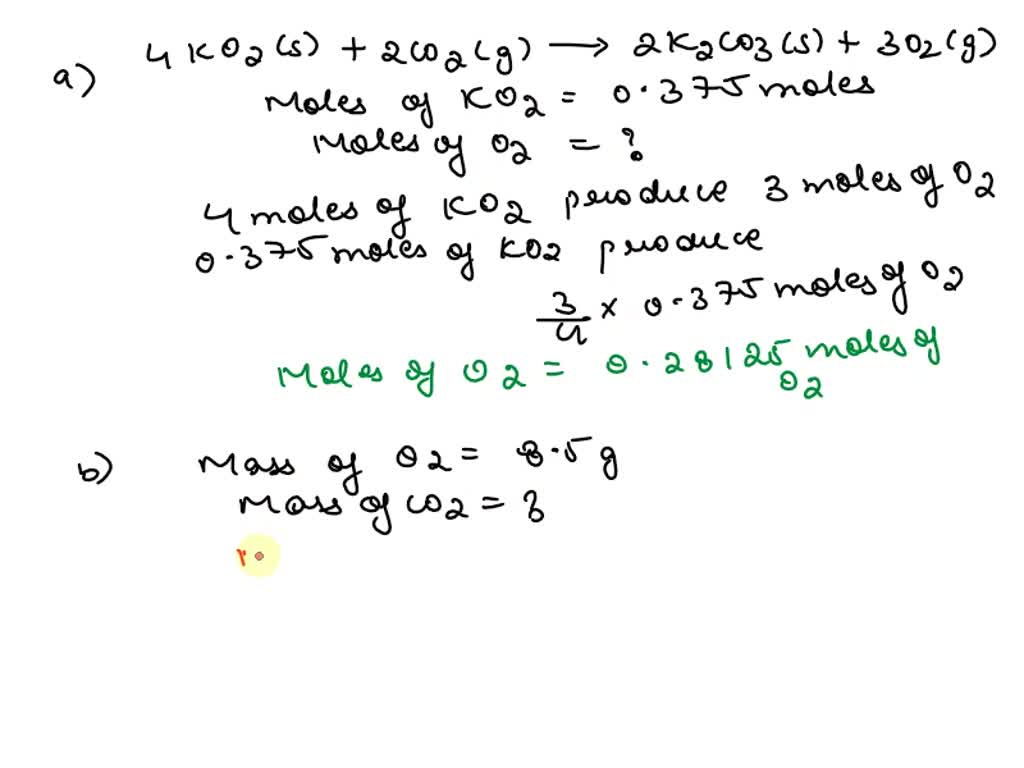 a) 4 KO2(s) + 2CO2(g) → 2K2CO3(s) + 3O2(g)
Moles of KO2 = 0.375 moles
Moles of O2 = ?
4 moles of KO2 produce 3 moles of O2
0.375 moles of KO2 produce
3/4 × 0.375 moles of O2
Moles of O2 = 0.28125 moles of
O2
b) Mass of O2 = 8.5 g
Mass of CO2 = ?